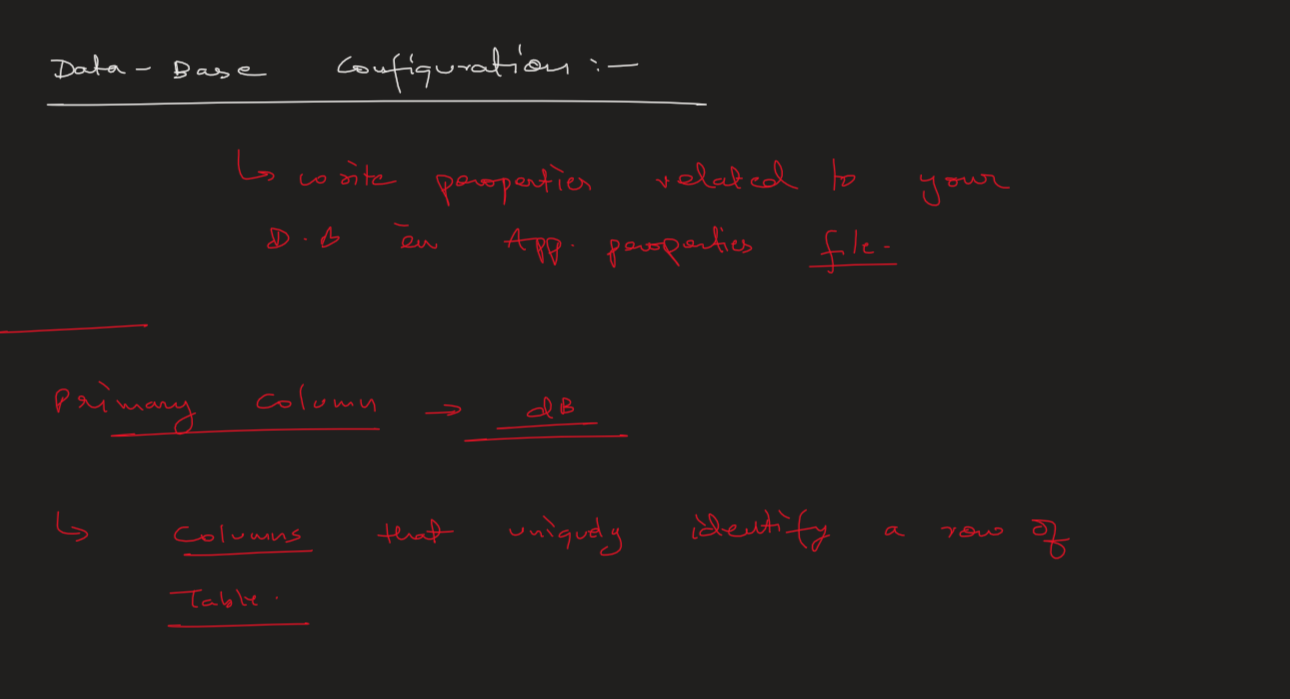 Data - Base Configuration :-
↳ write properties related to your
D.B in App. properties file.
Primary Column → dB
↳ Columns that uniquely identify a row of
Table.